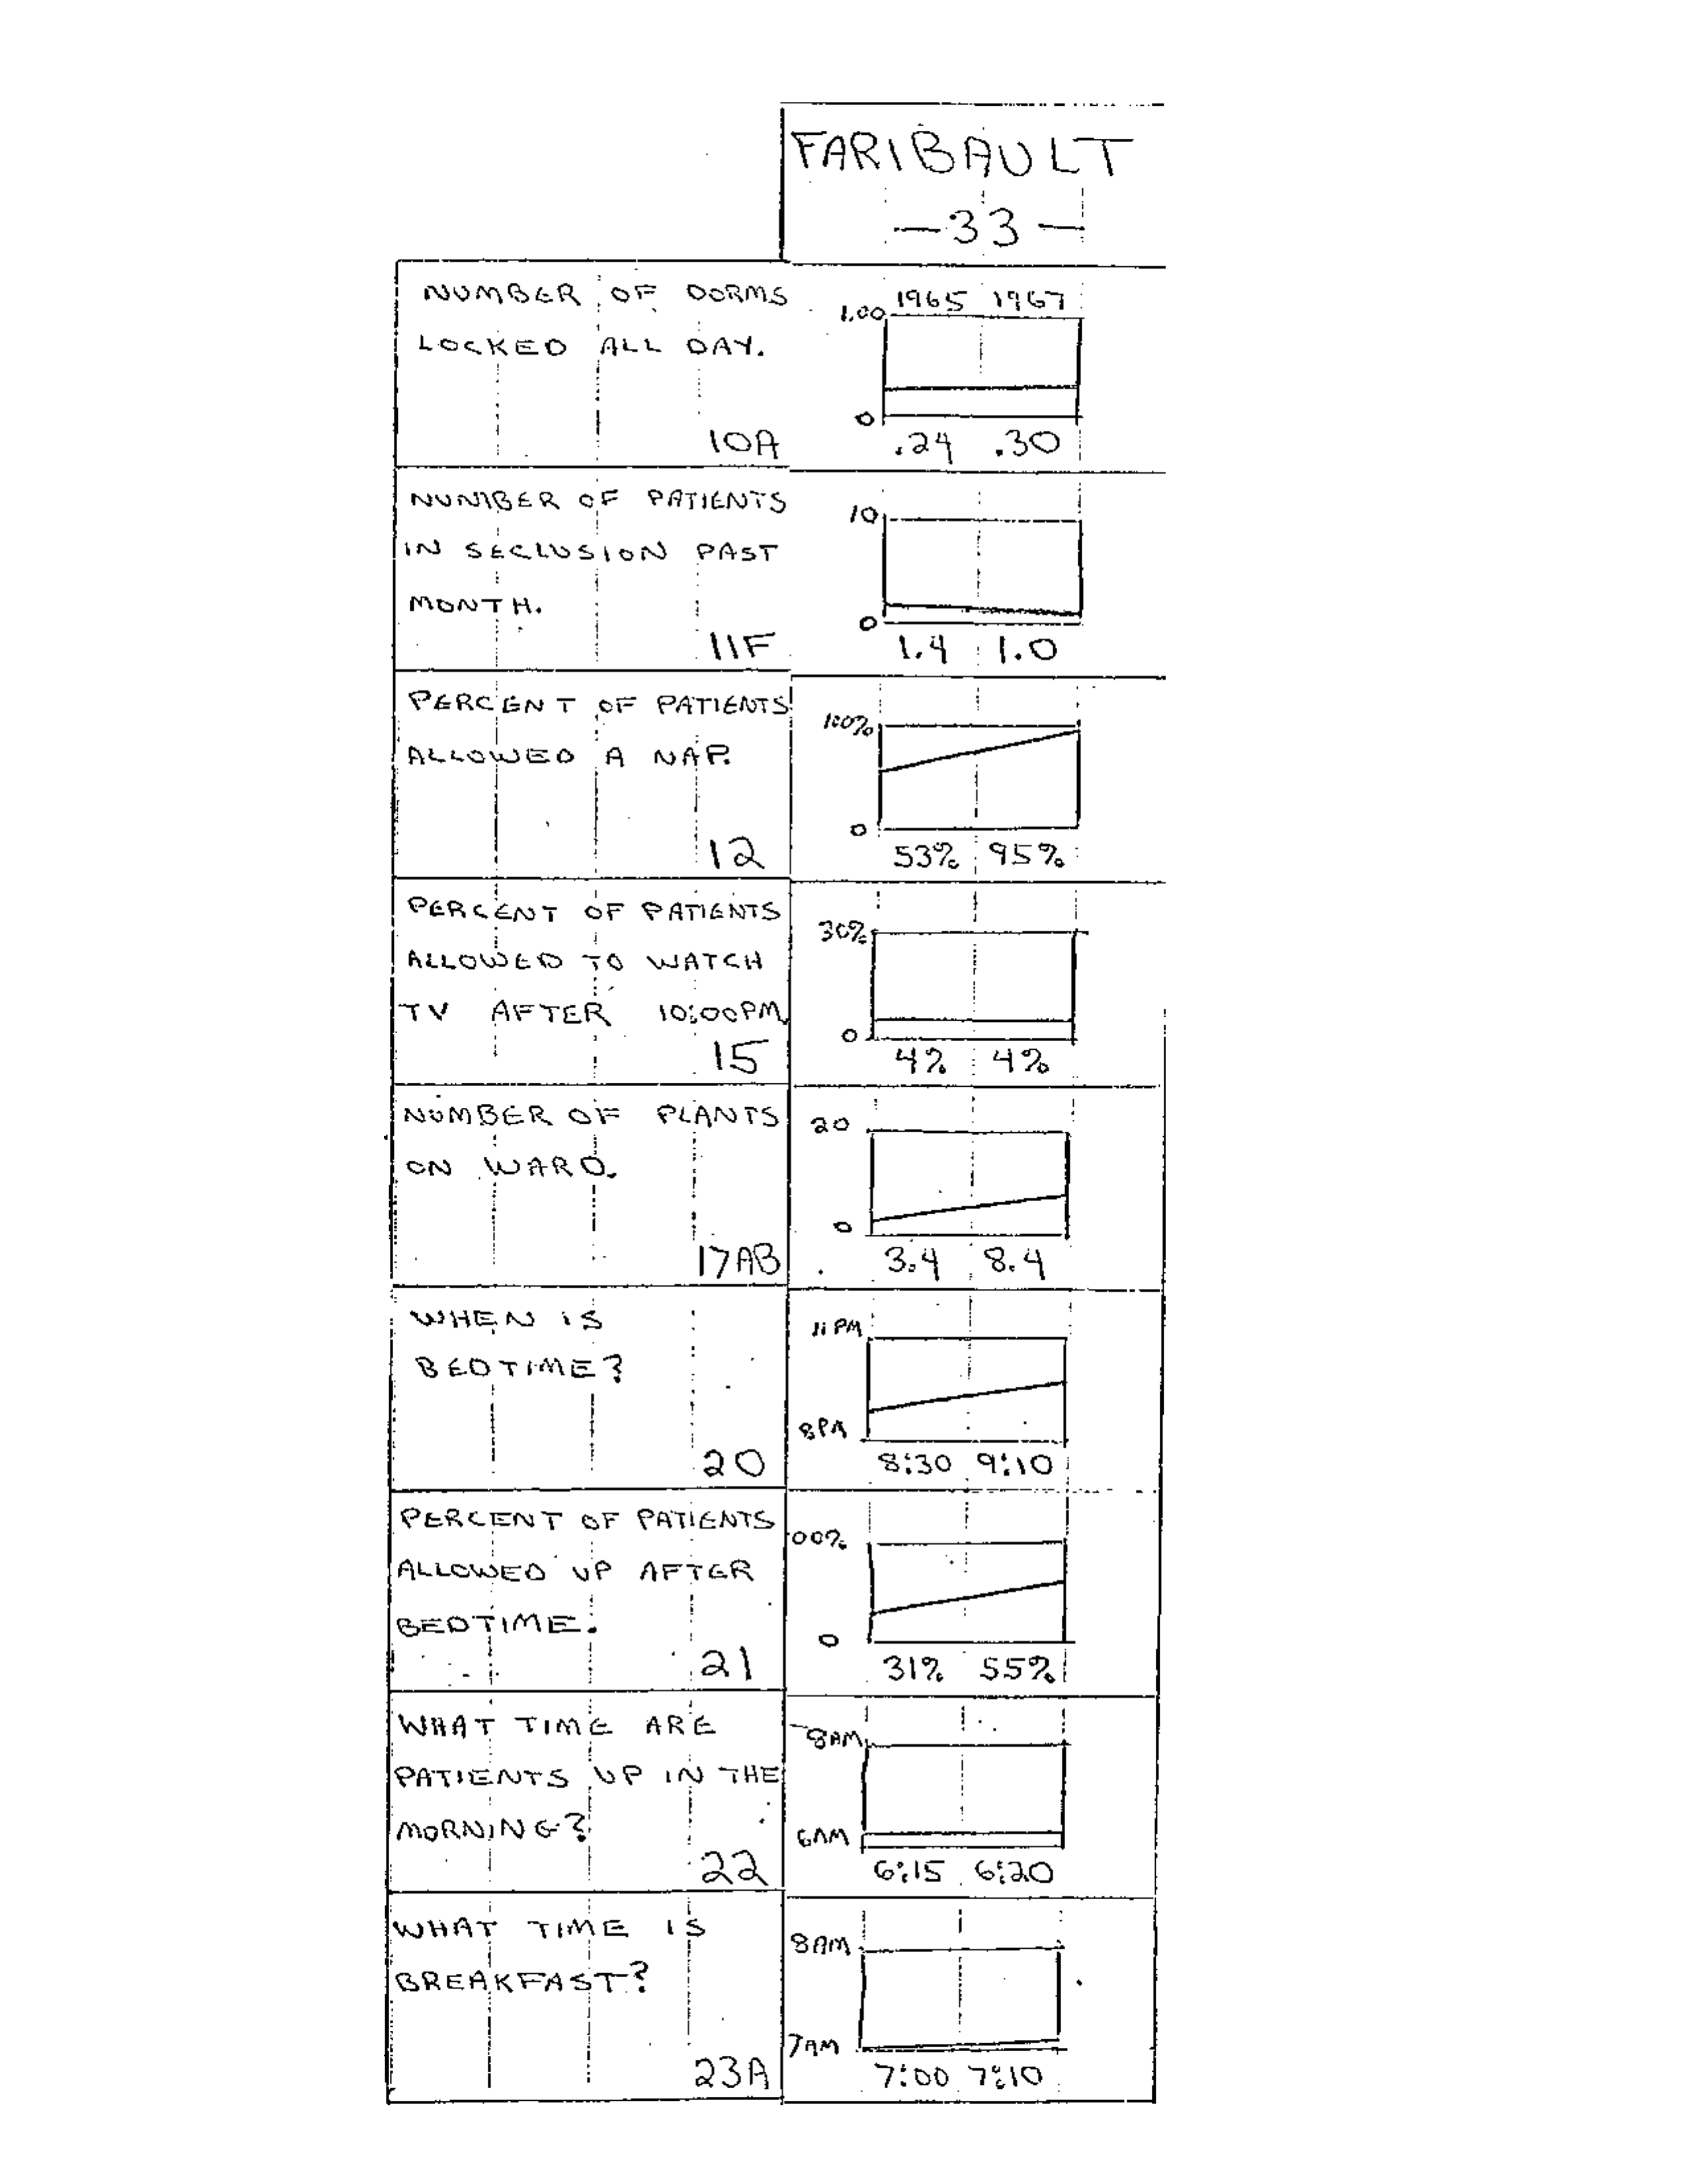 FARIBAULT
—33—
NUMBER OF DORMS
LOCKED ALL DAY.
10A
1965 1967
1.00
0
.24 .30
NUMBER OF PATIENTS
IN SECLUSION PAST
MONTH.
11F
10
0
1.4 1.0
PERCENT OF PATIENTS
ALLOWED A NAP.
12
100%
0
53% 95%
PERCENT OF PATIENTS
ALLOWED TO WATCH
TV AFTER 10:00PM
15
30%
0
4% 4%
NUMBER OF PLANTS
ON WARD.
17AB
20
0
3.4 8.4
WHEN IS
BEDTIME?
20
11 PM
8PM
8:30 9:10
PERCENT OF PATIENTS
ALLOWED UP AFTER
BEDTIME.
21
00%
0
31% 55%
WHAT TIME ARE
PATIENTS UP IN THE
MORNING?
22
8AM
6AM
6:15 6:20
WHAT TIME IS
BREAKFAST?
23A
8AM
7AM
7:00 7:10